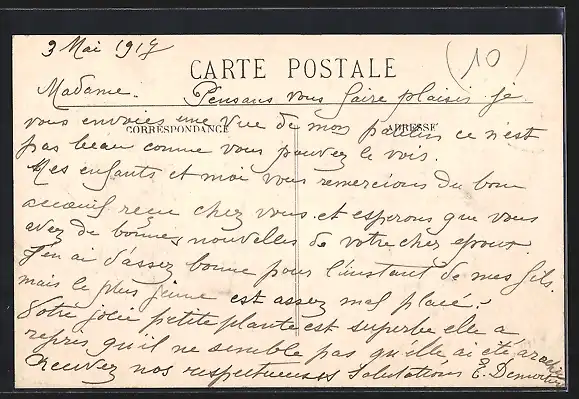 3 Mai 1917
(10)
CARTE POSTALE
Madame. Pensans vous faire plaisir je
vous envoies une vue de mon patelin ce n'est
CORRESPONDANCE ADRESSE
pas beau comme vous pouvez le voir.
Mes enfants et moi vous remercions du bon
accueuil reçu chez vous et esperons que vous
avez de bonnes nouvelles de votre cher epoux
J'en ai d'assez bonne pour l'instant de mes fils.
mais le plus jeune est assez mal placé.
Votre jolie petite plante est superbe elle a
repris qu'il ne semble pas qu'elle ai été arachée
Recevez nos respectueuses salutations E.